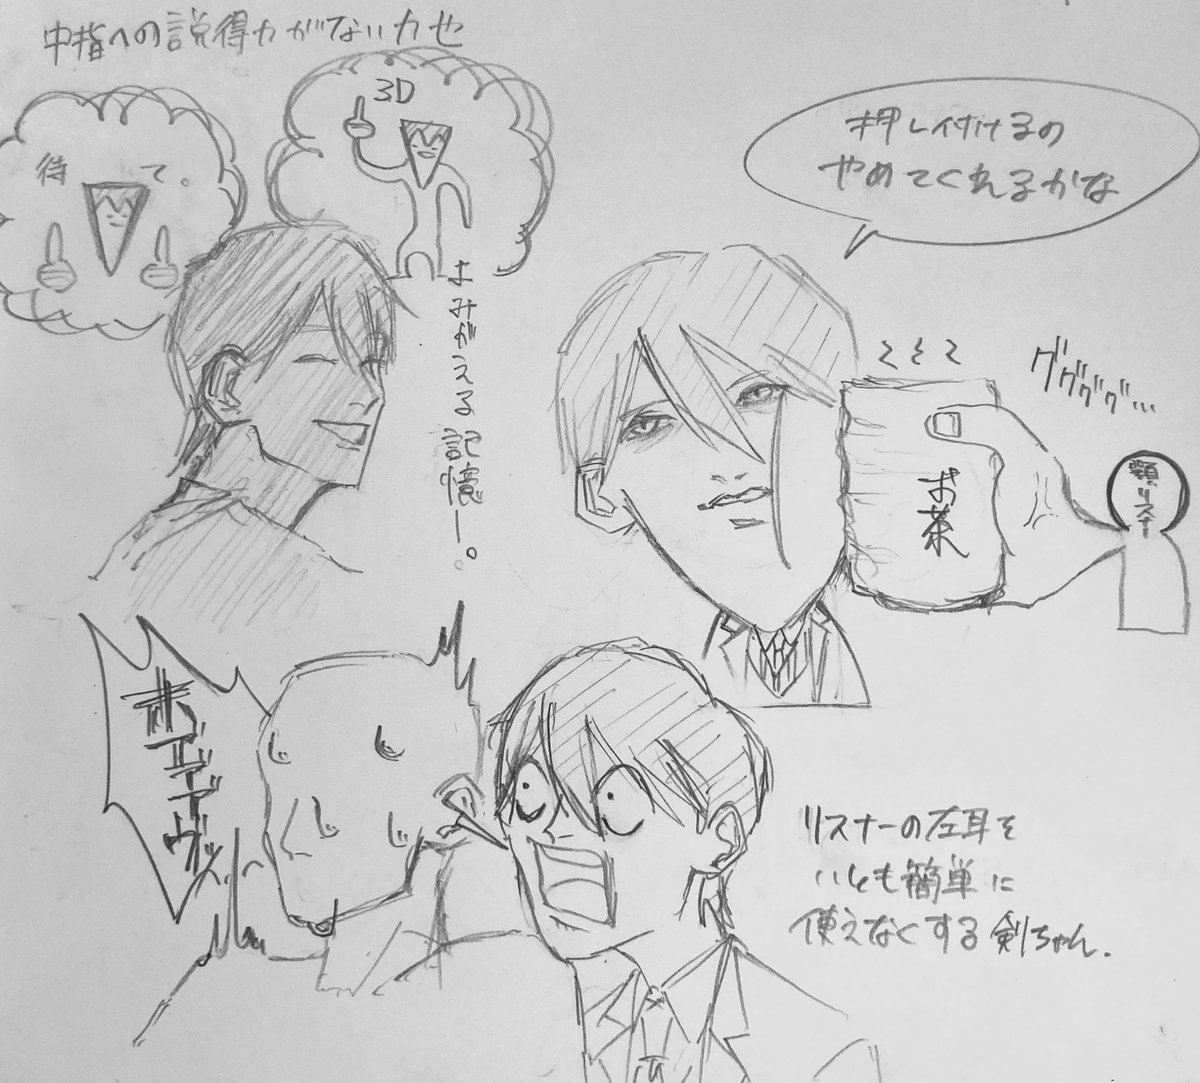 中指への説得力がない力也
待て。
3D
よみがえる記憶ー。
押し付けるの
やめてくれるかな
ググググ…
お茶
リスナー
リスナーの左耳を
いとも簡単に
使えなくする剣ちゃん.